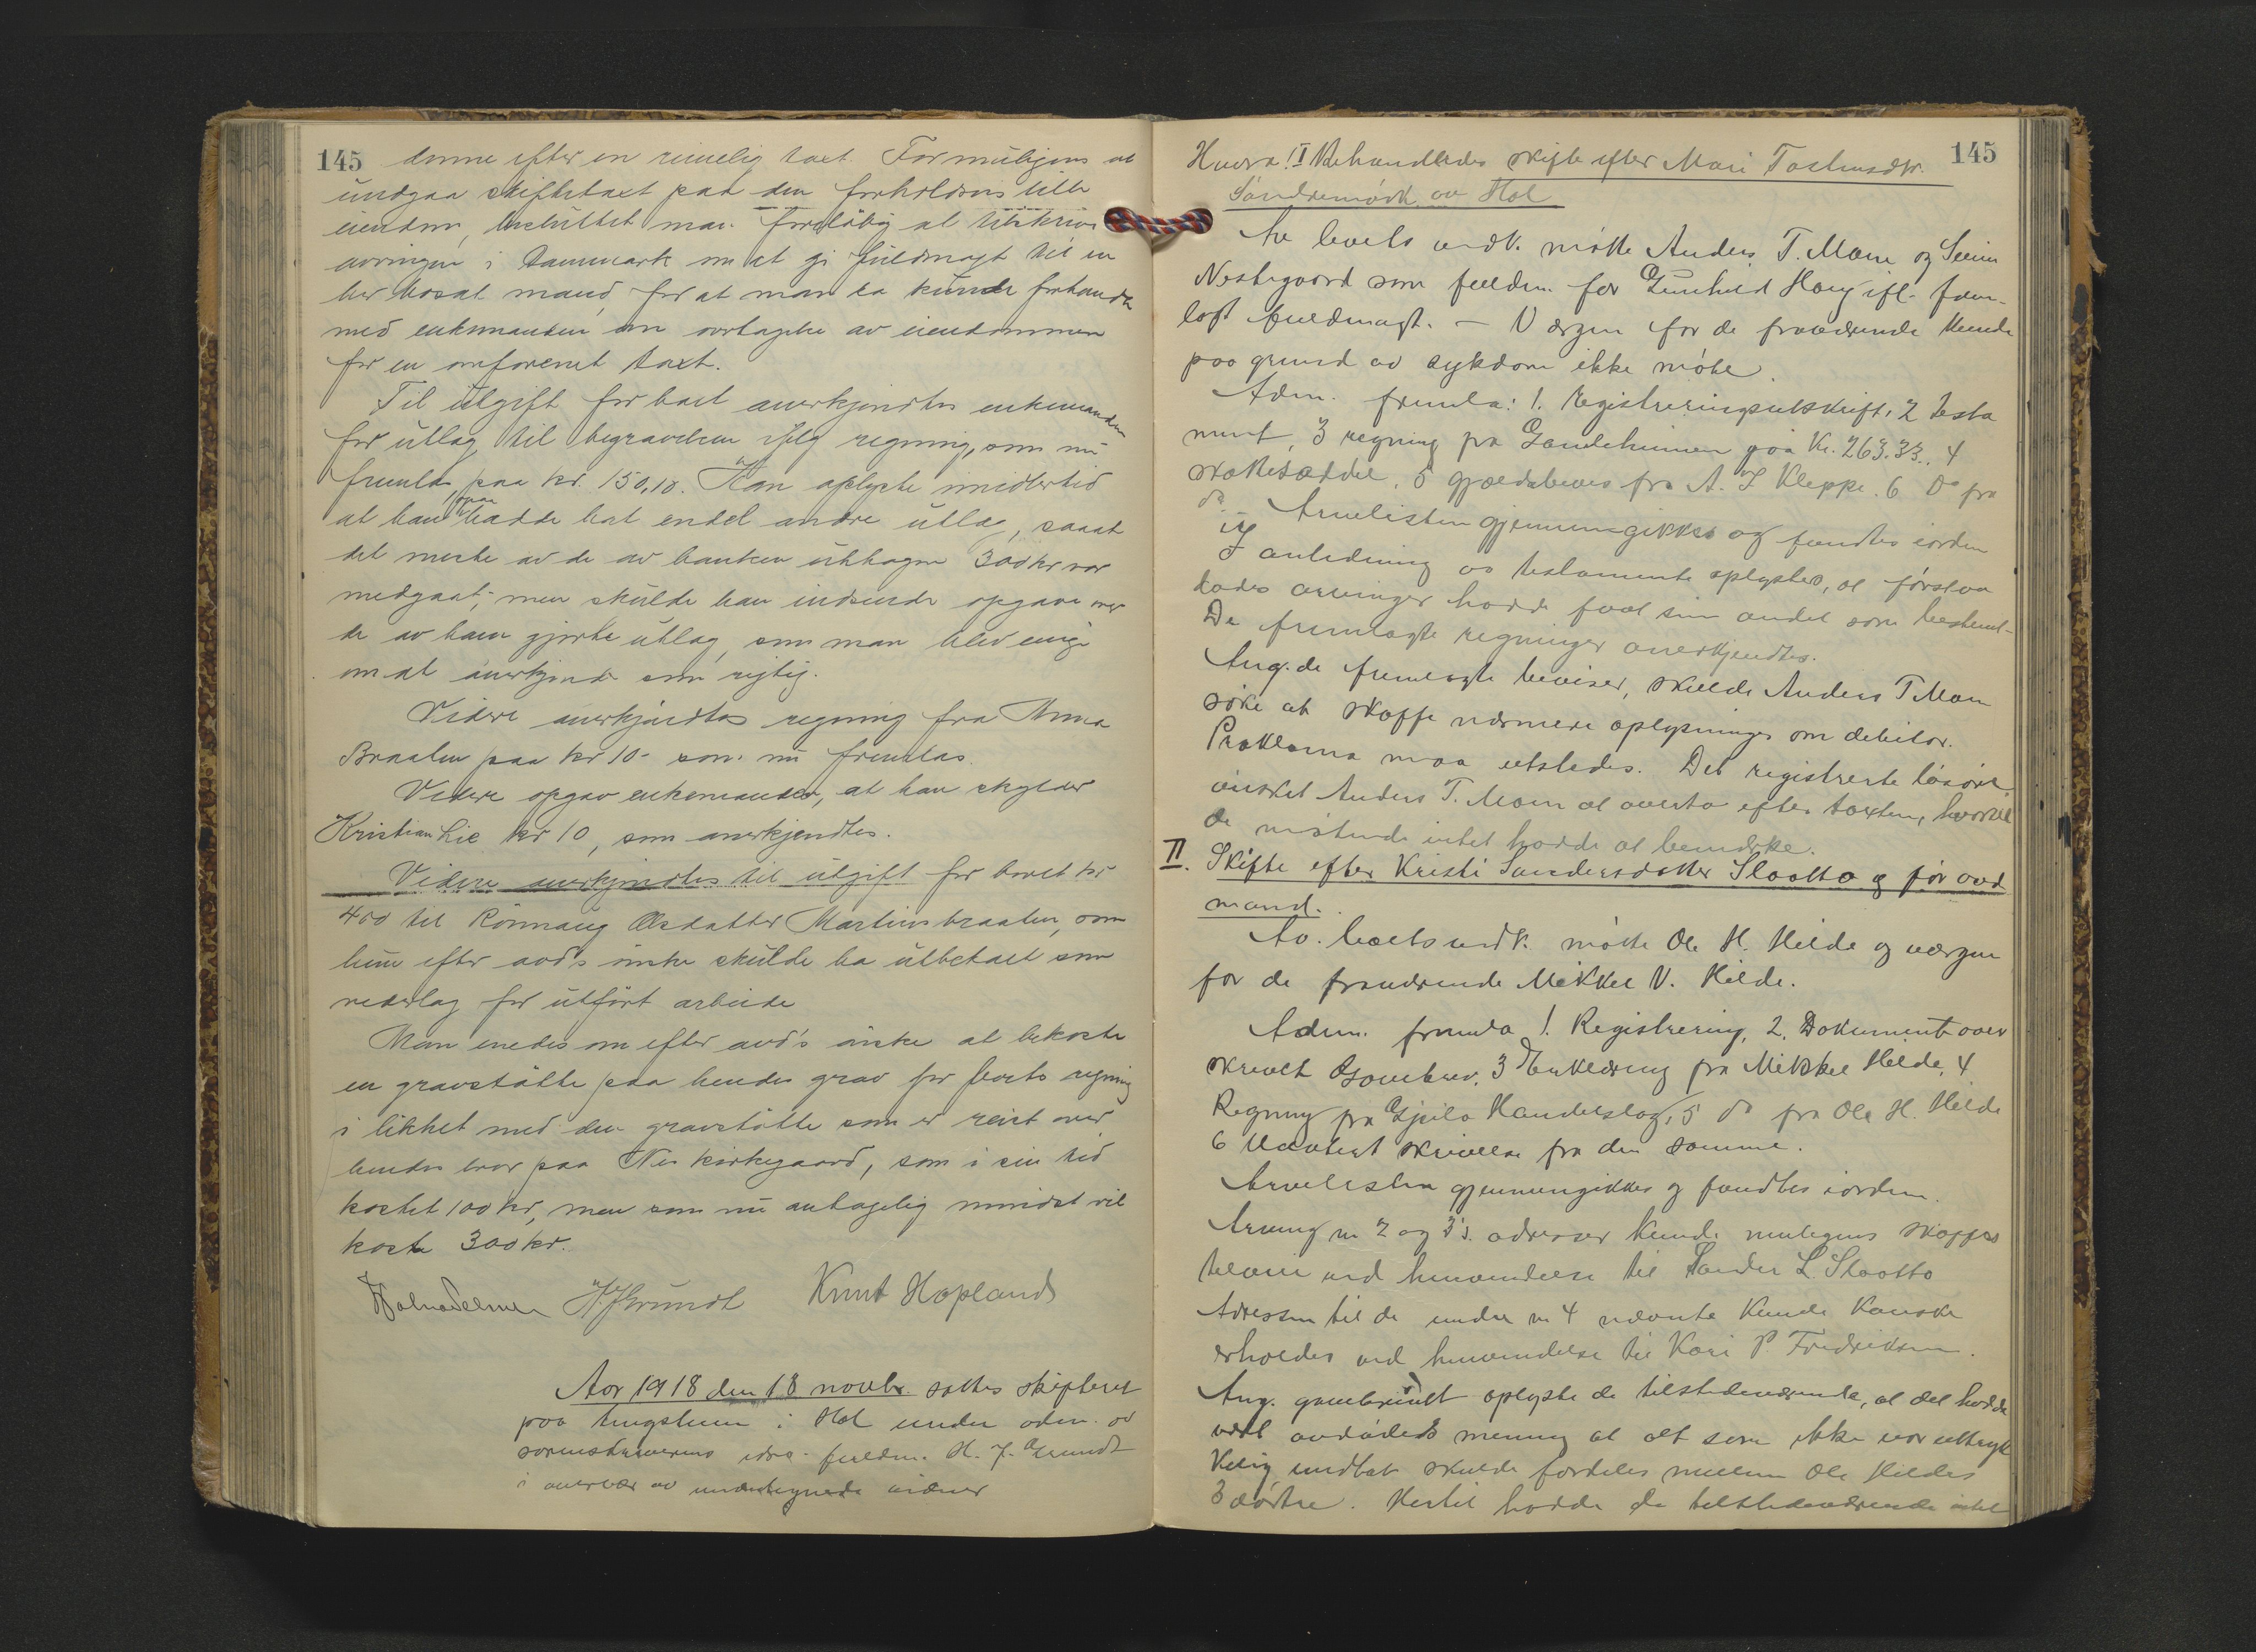 145
denne efter en rimelig taxt. For muligens at
undgaa skiftetaxt paa den forholdsvis lille
eiendom, besluttet man foreløbig at tilskrive
arvingen i Danmark om at gi fuldmagt til en
her bosat mand, for at man da kunde forhandle
med enkemanden om overtagelse av eiendommen
for en omforenet taxt.
Til utgift for boet anerkjendtes enkemanden
for utlæg til begravelsen ifølg regning, som nu
fremla paa kr. 150,10. Han oplyste imidlertid
at han ogsaa hadde hat endel andre utlæg, saaat
det meste av de av banken uttagne 300 kr var
medgaat; men skulde han indsende opgave over
de av ham gjorte utlæg, som man blev enige
om at anerkjende som rigtig.
Videre anerkjendtes regning fra Anna
Braaten paa kr 10- som nu fremlas.
Videre opgav enkemanden, at han skylder
Kristian Lie kr 10, som anerkjendtes.
Videre anerkjendtes til utgift for boet kr
400 til Rønnaug Olsdatter Martinsbraaten, som
hun efter avd's ønske skulde ha utbetalt som
vederlag for utført arbeide
Man enedes om efter avd's ønske at bekoste
en gravstøtte paa hendes grav for boets regning
i likhet med den gravstøtte som er reist over
hendes bror paa Nes kirkegaard, som i sin tid
kostet 100 kr, men som nu antagelig mindst vil
koste 300 kr.
H. J. Grundt Knut Hopland
Aar 1918 den 18 novbr. sattes skifteret
paa tingstuen i Hol under adm. av
sorenskriverens edsv. fuldm. H. J. Grundt
i overvær av undertegnede vidner
145
Hvorda! I Behandledes skifte efter Mari Tostensdtr.
Søndremørk av Hol
Av boets vedk. møtte Anders T. Moen og Svein
Nestegaard som fuldm. for Gunhild Haug ifl. frem-
lagt fuldmagt. — Værgen for de fraværende kunde
paa grund av sykdom ikke møte.
Adm. fremla: 1. Registreringsutskrift, 2 Testa
ment, 3 regning fra Gamlehjemmen paa Kr. 263.33. 4
skattesæddel, 5 gjældsbevis fra A. T Kleppe. 6 Do fra
do. Arvelisten gjennemgikkes og fandtes iorden
I anledning av testamente oplystes, at førstaa
dødes arvinger hadde faat sin andel som bestemt.
De fremlagte regninger anerkjendtes.
Ang. de fremlagte beviser, skulde Anders T Moen
søke at skaffe nærmere oplysninger om debitor.
Proklama maa utstedes. Det registrerte løsøre
ønsket Anders T. Moen at overta efter taxten, hvortil
de møtende intet hadde at bemerke.
II. Skifte efter Kristi Sandersdatter Slaatto og før avd
mand.
Av boets vedk. møtte Ole H. Hilde og værgen
for de fraværende Mikkel N. Hilde.
Adm. fremla 1. Registrering, 2. Dokument over
skrevet Gavebrev, 3 Erklæring fra Mikkel Hilde, 4
Regning fra Gjeilo Handelslag, 5 do fra Ole H. Hilde
6 Udatert skrivelse fra den samme.
Arvelisten gjennemgikkes og fandtes iorden.
Arving nr 2 og 3's adresser kunde muligens skaffes
tilveie ved henvendelse til Sander L. Slaatto
Adressen til de under nr 4 nævnte kunde kanske
erholdes ved henvendelse til Kari P. Fredriksen.
Ang. gavebrevet oplyste de tilstedeværende, at det hadde
vært avdødes mening at alt som ikke var uttryk
kelig undtat skulde fordeles mellem Ole Hildes
3 døtre. Hertil hadde de tilstedeværende intet